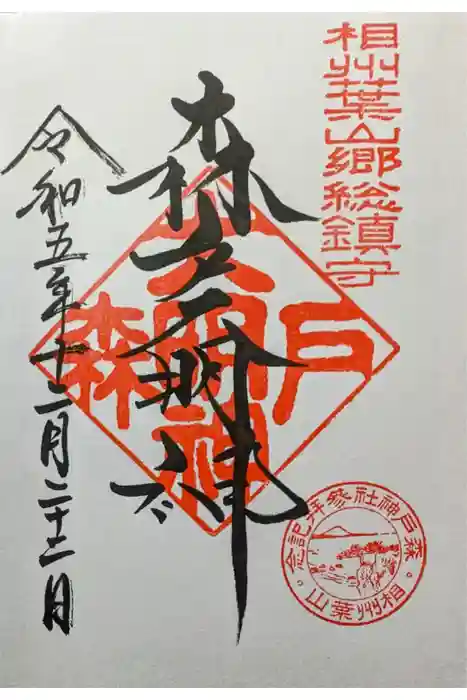 相州葉山郷総鎮守
森戸大明神
森戸大明神
令和五年十二月二十二日
森戸神社參拝記念
相州葉山